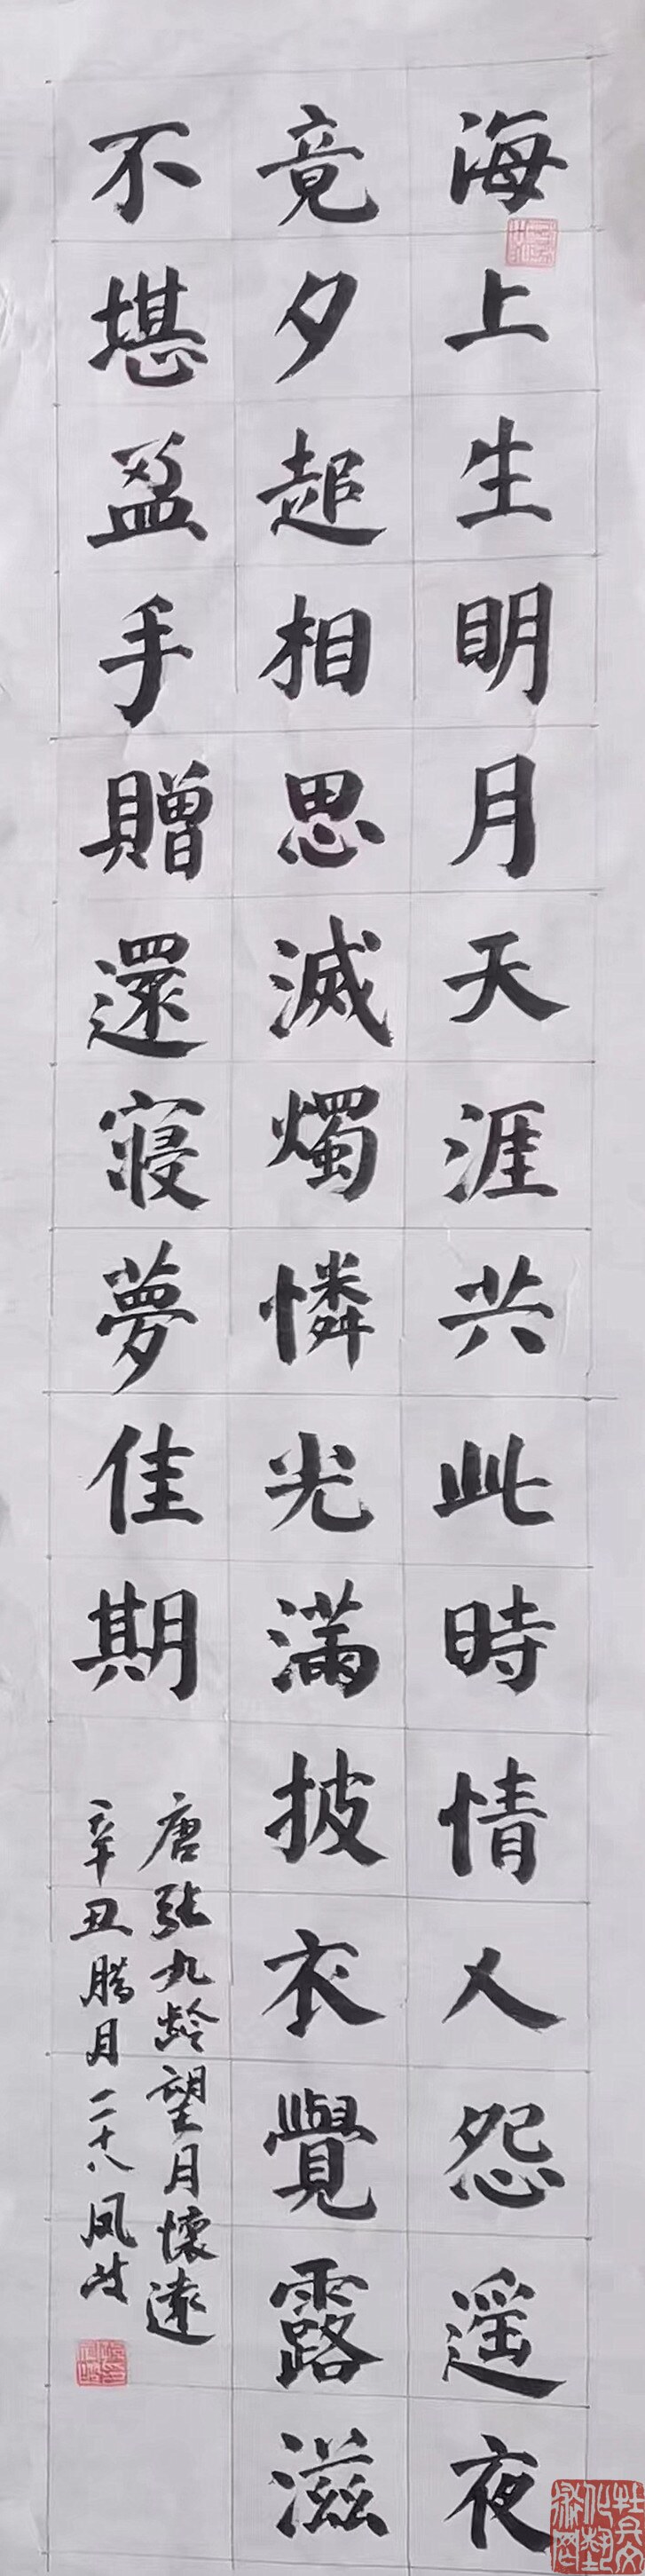 海上生明月天涯共此時情人怨遥夜
竟夕起相思滅燭憐光滿披衣覺露滋
不堪盈手贈還寝夢佳期
唐張九齡望月懷遠
辛丑腊月二十八凤岐